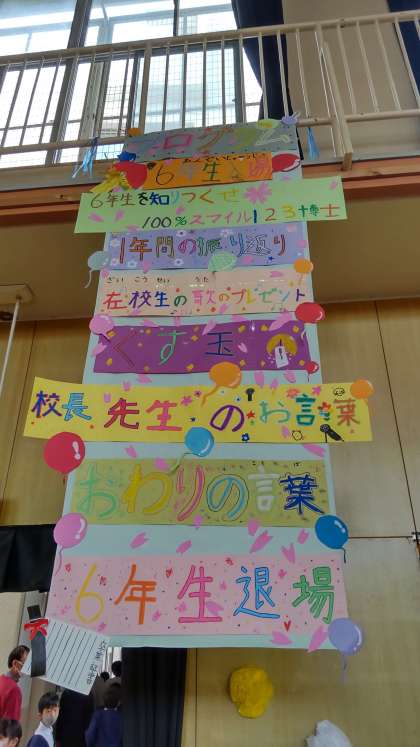 プログラム
6年生
6年生を知りつくせ
100%スマイル123博士
1年間の振り返り
ざい こう せい うた
在校生の歌のプレゼント
くす玉
校長先生のお言葉
こと ば
おわりの言葉
6年生退場